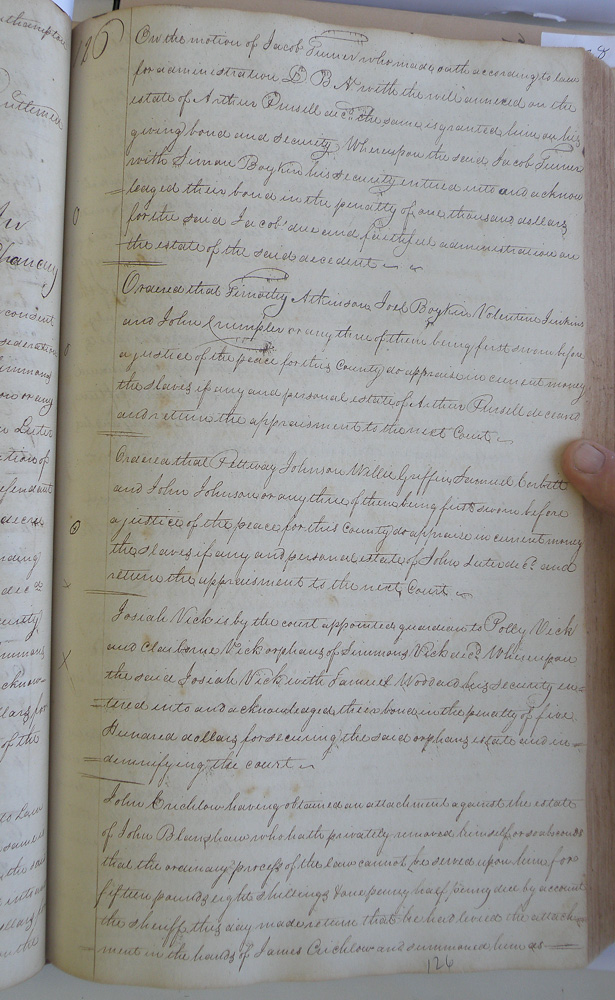 126
On the motion of Jacob Turner who made oath according to law
for administration D B N with the will annexed on the
estate of Arthur Pursell decd. the same is granted him on his
giving bond and security, Whereupon the said Jacob Turner
with Simon Boykin his security entered into and acknow
=ledged their bond in the penalty of one thousand dollars
for the said Jacob' due and faithful administration on
the estate of the said decedent
Ordered that Timothy Atkinson, Joel Boykin Valentine Jenkins
and John Crumpler or any three of them being first sworn before
a justice of the peace for this County do appraise in current money
the slaves if any and personal estate of Arthur Pursell deceased
and return the appraisment to the next Court
Ordered that Pettway Johnson Willie Griffin, Samuel Corbett
and John Johnson or any three of them being first sworn before
a justice of the peace for this County do appraise in current money
the slaves if any and personal estate of John decd. and
return the appraisment to the next Court
Josiah Vick is by the court appointed guardian to Polly Vick
and Claiborne Vick orphans of Simmons Vick decd Whereupon
the said Josiah Vick with Samuel Woodard his security en=
=tered into and acknowledged their bond in the penalty of five
Hundred dollars for securing the said orphans estate and in=
=demnifying the court
John Crichlow having obtained an attachment against the estate
of John Blanshaw who hath privately removed himself or so absconds
that the ordinary process of the law cannot be served upon him for
fifteen pounds eight shillings & one penny half penny due by account
the sheriff this day made return that he had levied the attach
ment in the hands of James Crichlow and summoned him as
126